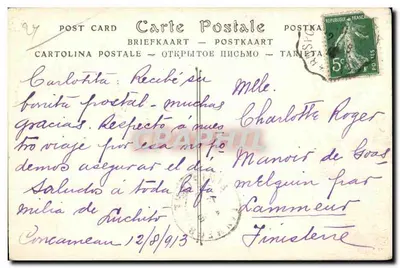 27
POST CARD Carte Postale POSTKA
BRIEFKAART — POSTKAART
CARTOLINA POSTALE — ОТКРЫТОЕ ПИСЬМО — TARJETA
REPUBLIQUE FRANÇAISE
5c
POSTES
Carlotita: Recibí su
bonita postal - muchas
gracias. Respecto á nues
tro viaje por esa no po
demos asegurar el dia.
Saludos a toda la fa
milia de Luchito
Concarneau 12/8/913
Mlle.
Charlotte Roger
Manoir de Goas
melquin par
Lanmeur
Finistère